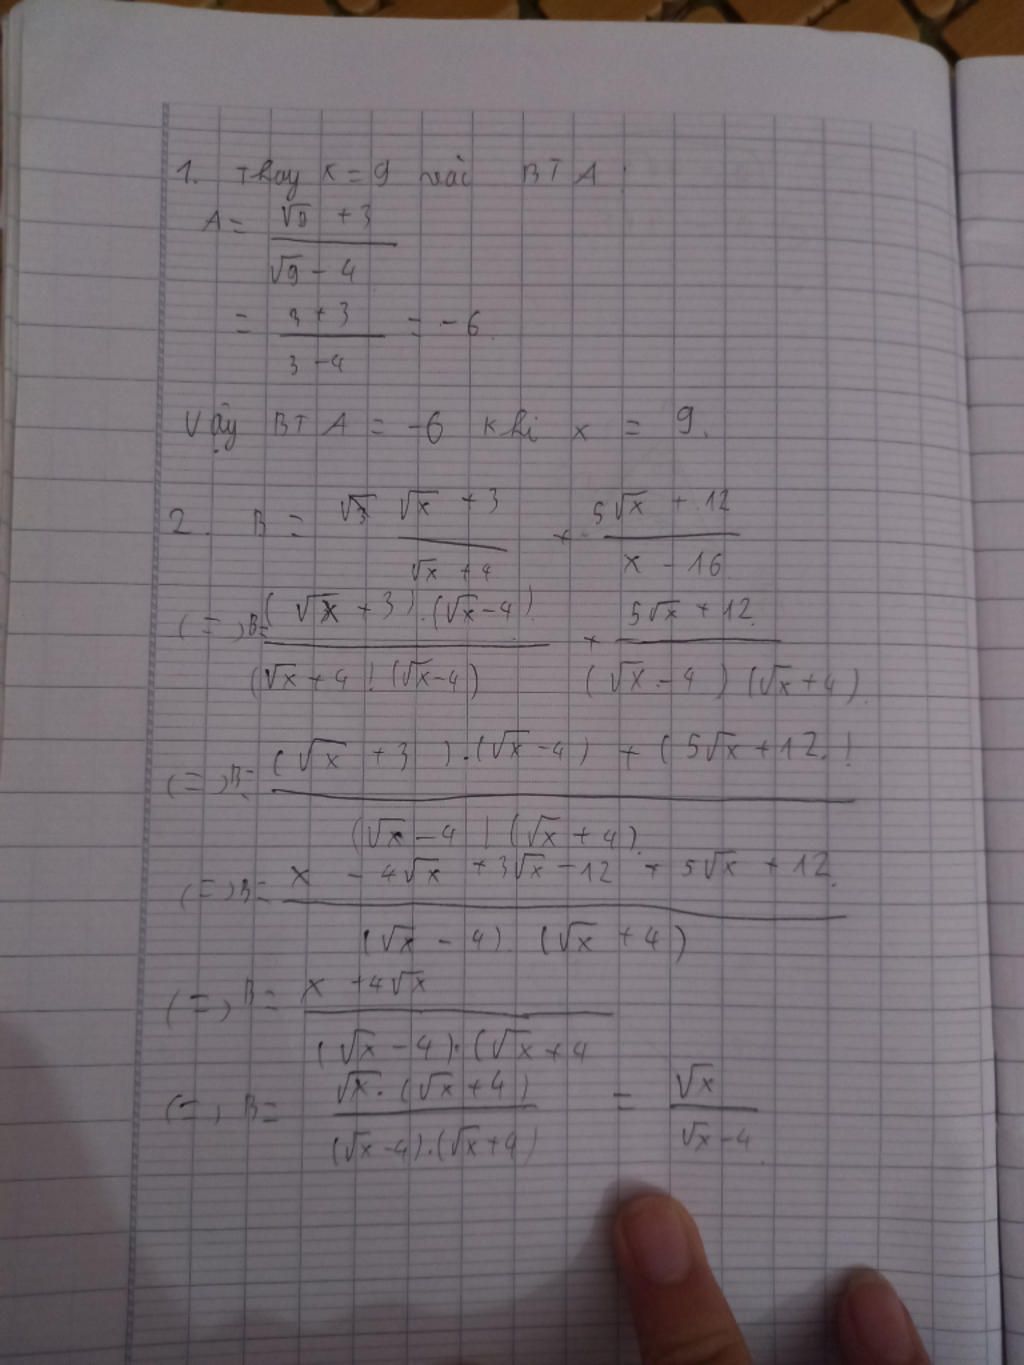 1. Thay x = 9 vào BT A :
A = (√9 + 3) / (√9 - 4)
= (3 + 3) / (3 - 4) = -6.
Vậy BT A = -6 khi x = 9.
2. B = (√x + 3) / (√x + 4) + (5√x + 12) / (x - 16)
(=) B = ((√x + 3).(√x - 4)) / ((√x + 4)(√x - 4)) + (5√x + 12) / ((√x - 4)(√x + 4)).
(=) B = ((√x + 3).(√x - 4) + (5√x + 12)) / ((√x - 4)(√x + 4).
(=) B = (x - 4√x + 3√x - 12 + 5√x + 12) / ((√x - 4).(√x + 4))
(=) B = (x + 4√x) / ((√x - 4).(√x + 4
(=) B = (√x.(√x + 4)) / ((√x - 4).(√x + 4)) = √x / (√x - 4).